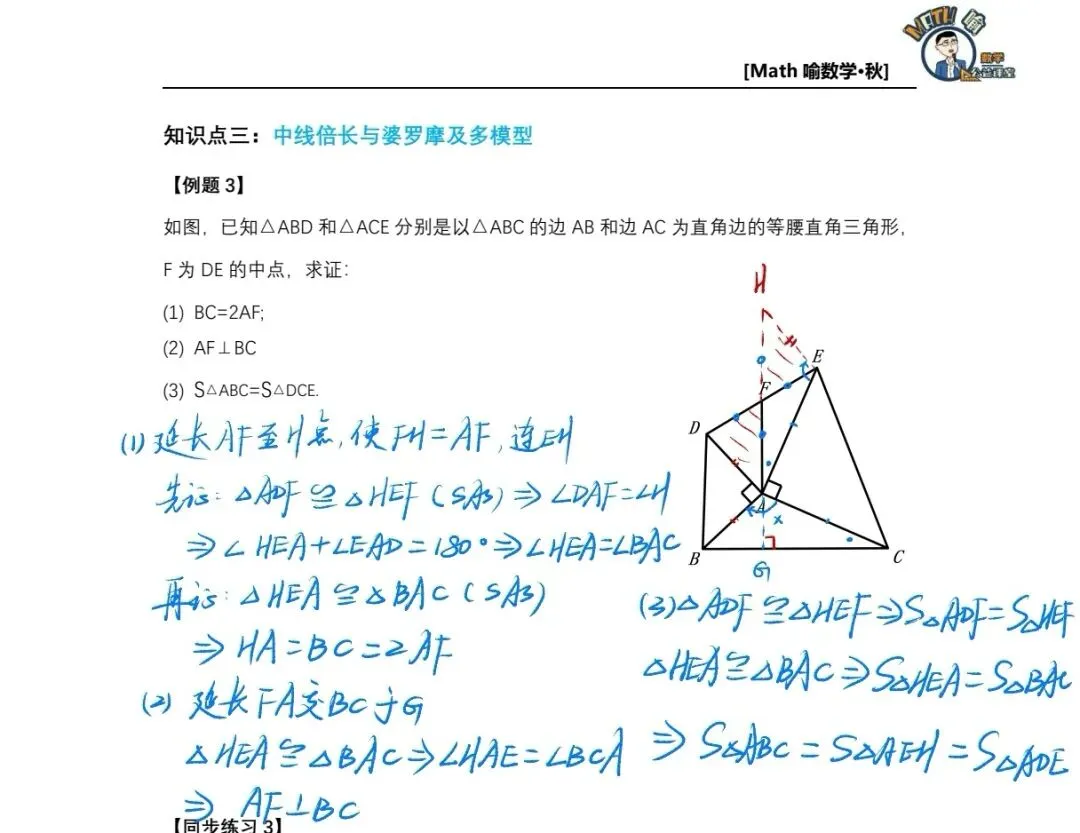 MATH 喻
数学
公益课堂
[Math 喻数学•秋]
知识点三：中线倍长与婆罗摩及多模型
【例题 3】
如图，已知△ABD 和△ACE 分别是以△ABC 的边 AB 和边 AC 为直角边的等腰直角三角形，
F 为 DE 的中点，求证：
(1) BC=2AF;
(2) AF⊥BC
(3) S△ABC=S△DCE.
H
E
F
D
A
x
B
C
G
(1) 延长AF至H点，使FH=AF，连EH
先证：△ADF≌△HEF (SAS) ⇒ ∠DAF=∠H
⇒ ∠HEA+∠EAD=180° ⇒ ∠HEA=∠BAC
再证：△HEA≌△BAC (SAS)
⇒ HA=BC=2AF
(2) 延长FA交BC于G
△HEA≌△BAC ⇒ ∠HAE=∠BCA
⇒ AF⊥BC
(3) △ADF≌△HEF ⇒ S△ADF=S△HEF
△HEA≌△BAC ⇒ S△HEA=S△BAC
⇒ S△ABC=S△AEH=S△ADE
【同步练习 3】